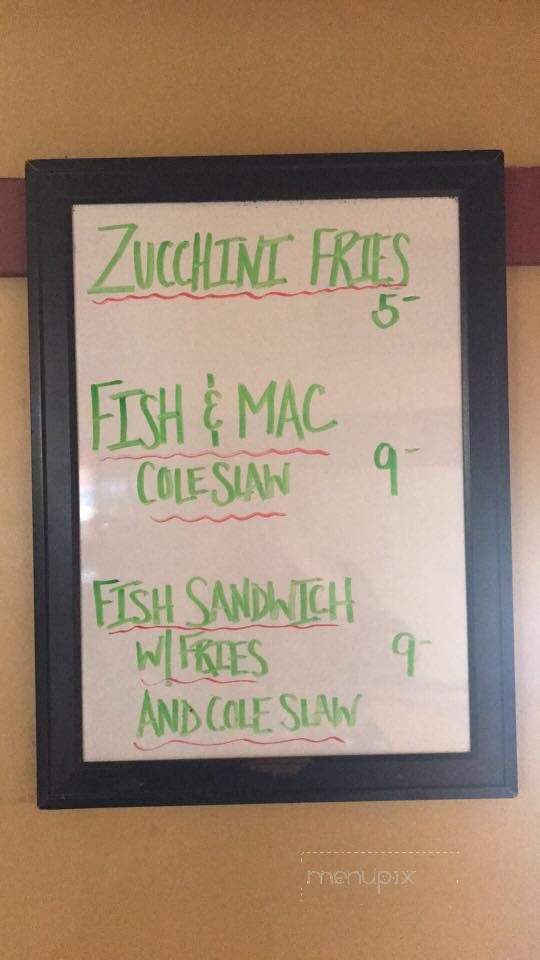 ZUCCHINI FRIES
5-
FISH & MAC
COLE SLAW 9-
FISH SANDWICH
W/ FRIES 9-
AND COLE SLAW
menupix